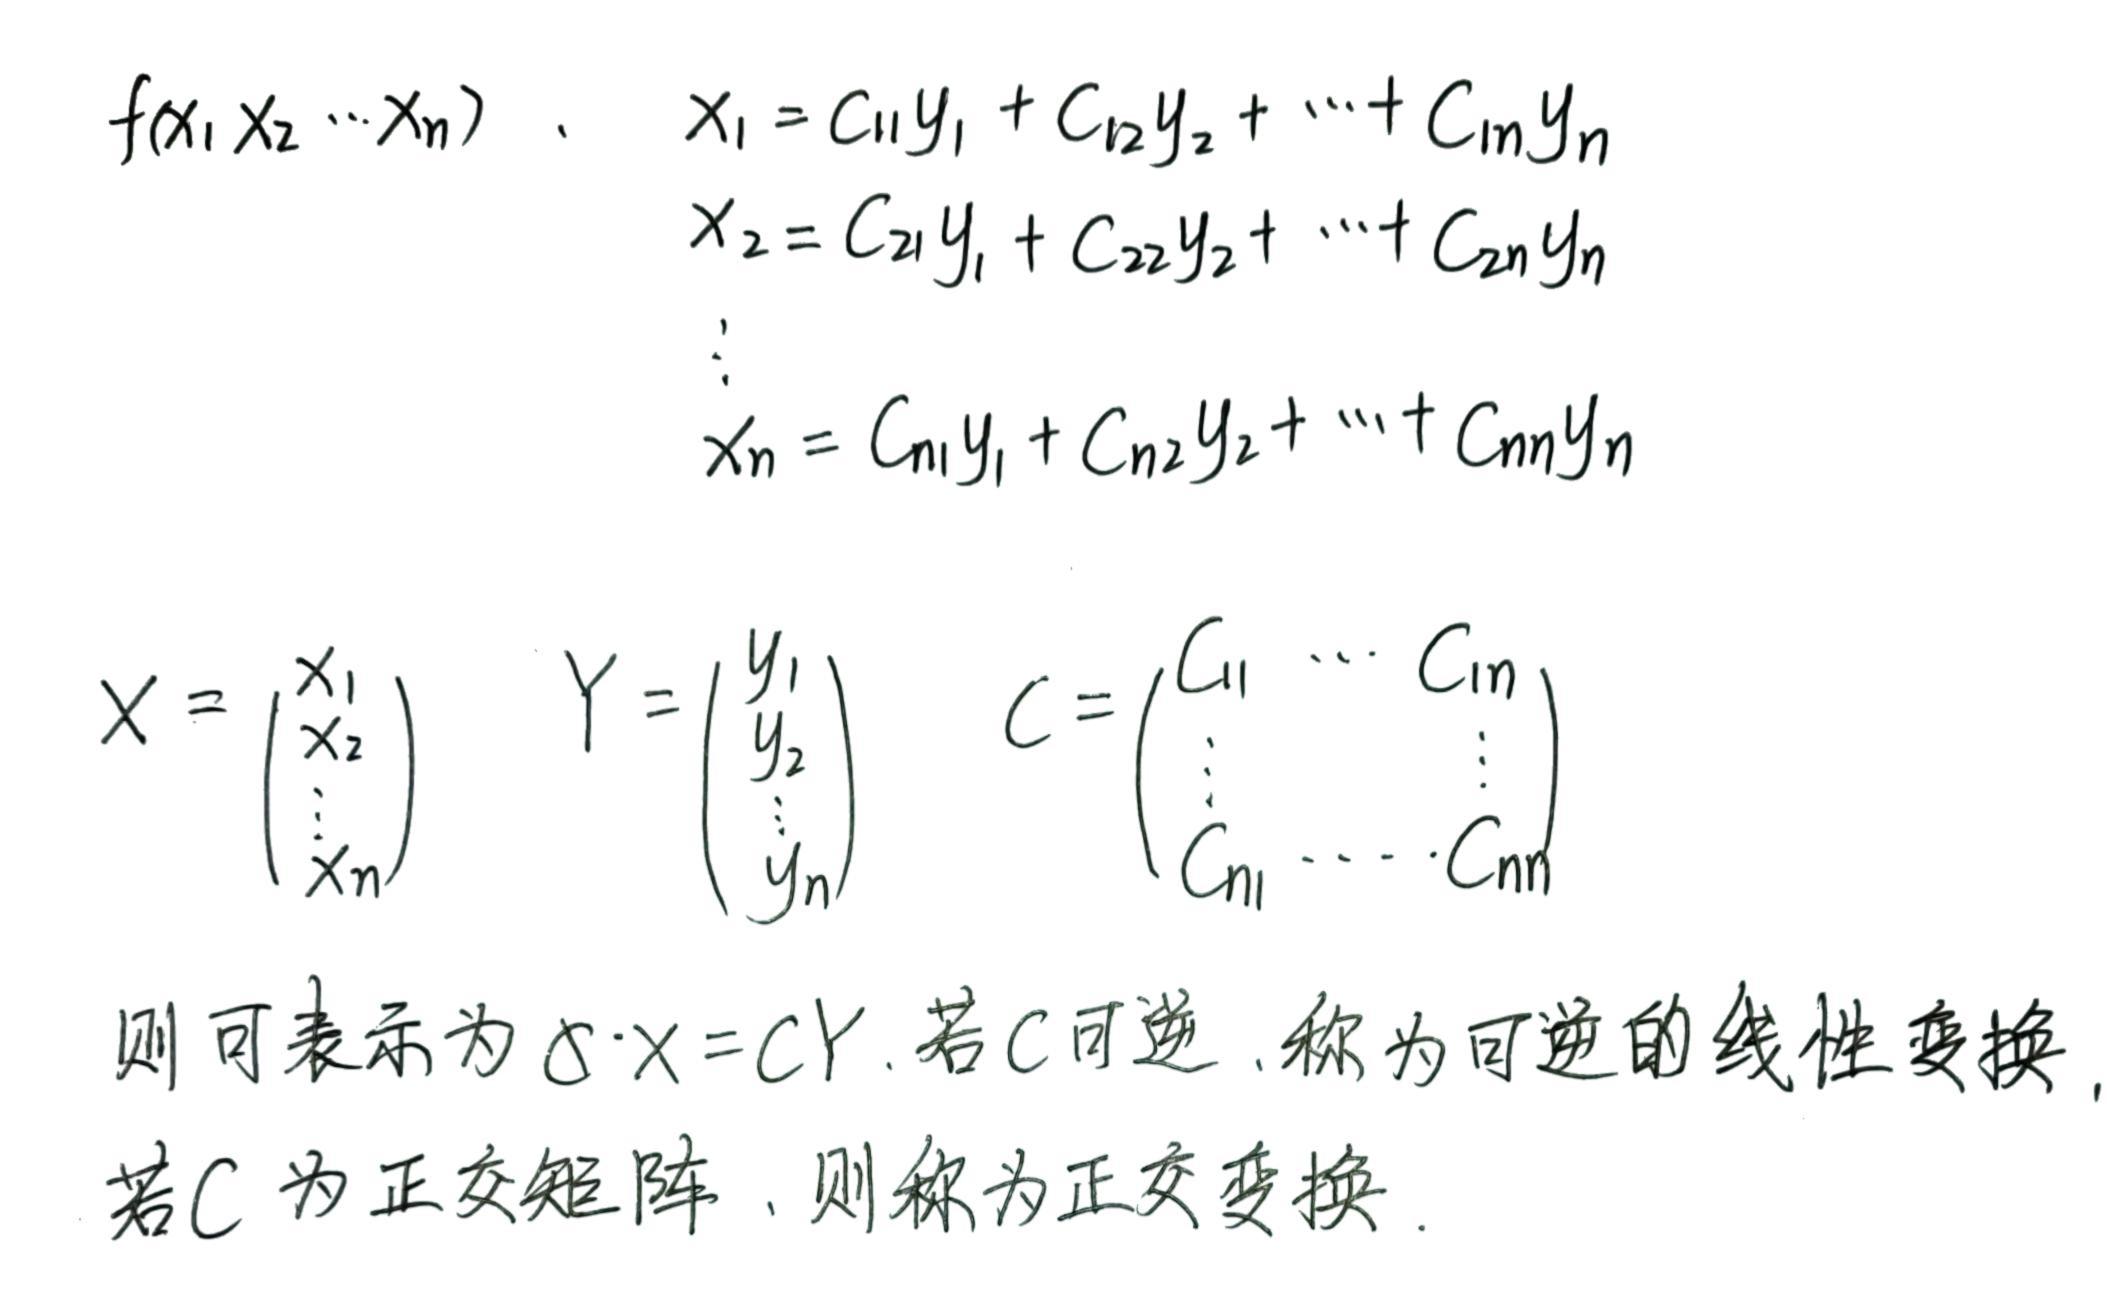 f(x₁ x₂ ⋯ xₙ) 、 x₁ = C₁₁y₁ + C₁₂y₂ + ⋯ + C₁ₙyₙ
x₂ = C₂₁y₁ + C₂₂y₂ + ⋯ + C₂ₙyₙ
⋮
xₙ = Cₙ₁y₁ + Cₙ₂y₂ + ⋯ + Cₙₙyₙ
X = (x₁ x₂ ⋮ xₙ) Y = (y₁ y₂ ⋮ yₙ) C = (C₁₁ ⋯ C₁ₙ ⋮ ⋮ Cₙ₁ ⋯ Cₙₙ)
则可表示为 δ·X = CY. 若C可逆、称为可逆的线性变换,
若C 为正交矩阵、则称为正交变换.